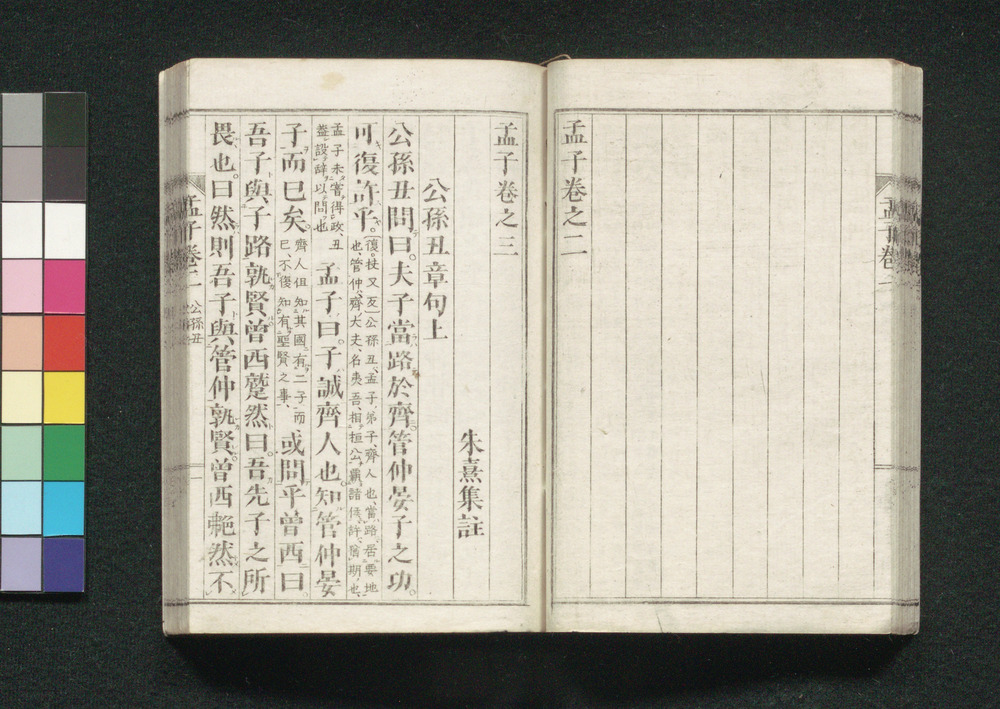 孟子卷之二
孟子卷之三
朱熹集註
公孫丑章句上
公孫丑問曰。夫子當路於齊。管仲晏子之功。
可復許乎。
復。扶又反。公孫丑、孟子弟子、齊人也、當路、居要地
也、管仲、齊大夫、名夷吾、相桓公、霸諸侯、許、猶期也、
孟子未嘗得政、丑
蓋設辭以問也
孟子曰。子誠齊人也。知管仲晏
子而已矣。
齊人但知其國有二子而
已、不復知有聖賢之事、
或問乎曾西曰。
吾子與子路孰賢。曾西蹵然曰。吾先子之所
畏也。曰然則吾子與管仲孰賢。曾西艴然不
孟子卷二
公孫丑
孟子卷